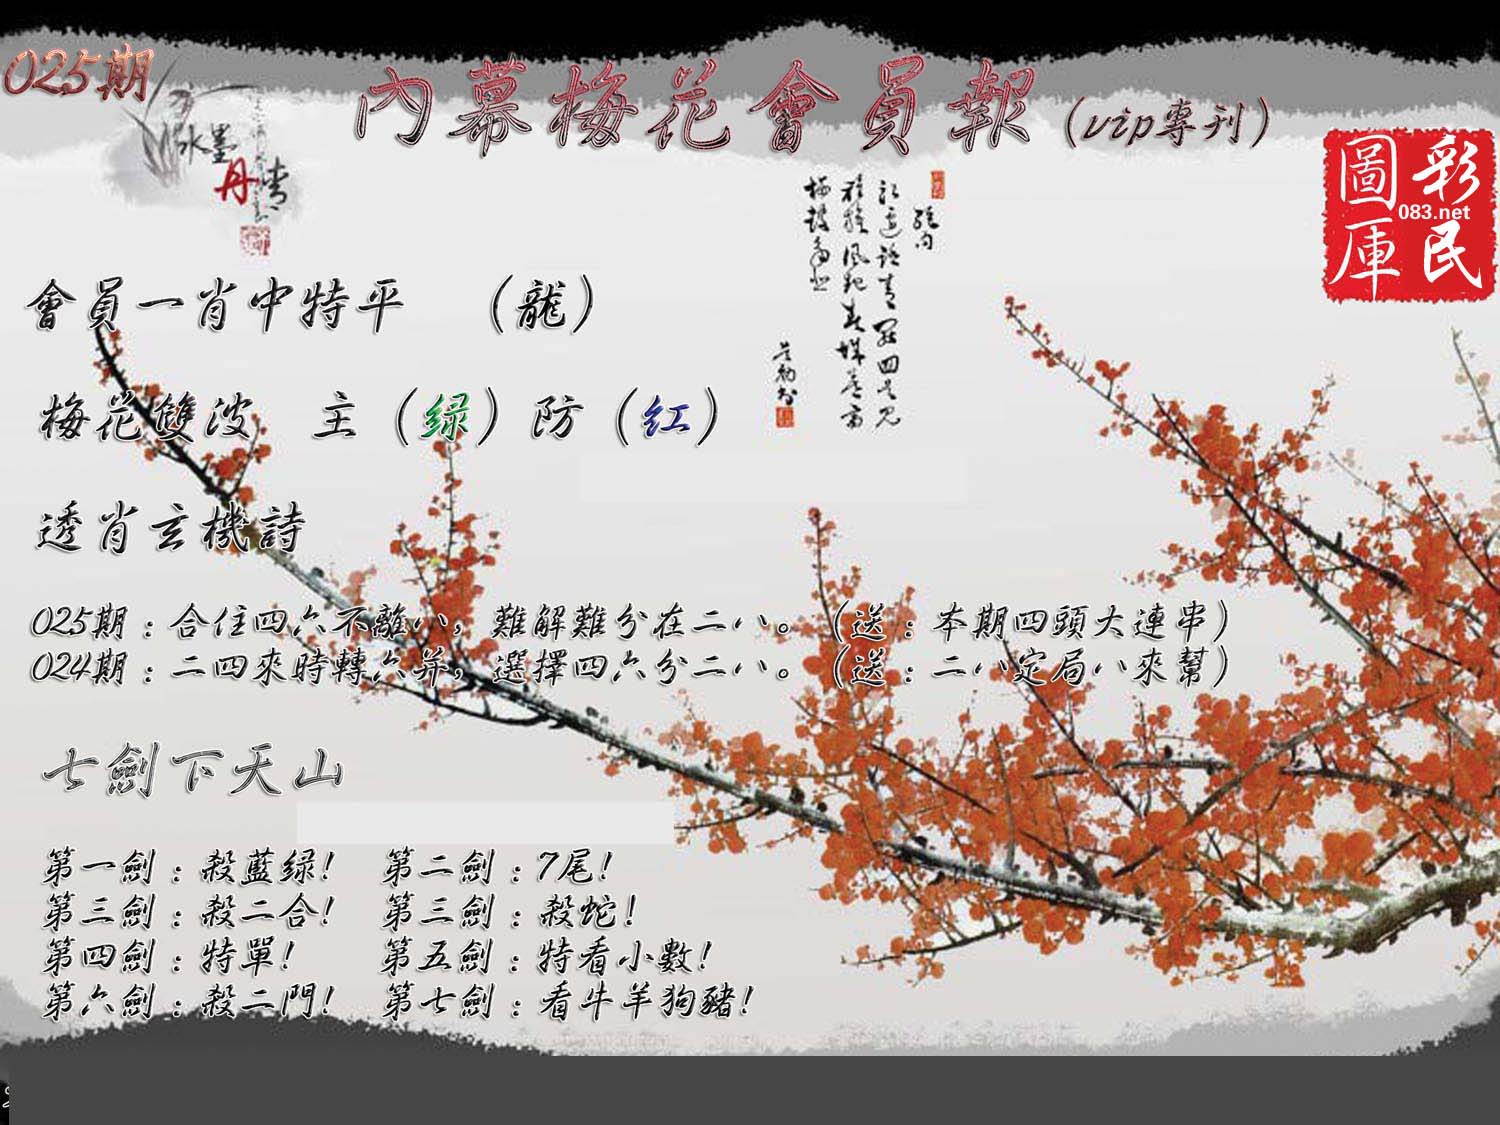 025期
內幕梅花會員報（vip專刊）
水墨
丹青
彩民
圖庫
083.net
會員一肖中特平 （龍）
梅花雙波 主（绿）防（红）
透肖玄機詩
025期：合住四六不離八，難解難分在二八。（送：本期四頭大連串）
024期：二四來時轉六并，選擇四六分二八。（送：二八定局八來幫）
七劍下天山
第一劍：殺藍绿！ 第二劍：7尾！
第三劍：殺二合！ 第三劍：殺蛇！
第四劍：特單！ 第五劍：特看小數！
第六劍：殺二門！ 第七劍：看牛羊狗豬！